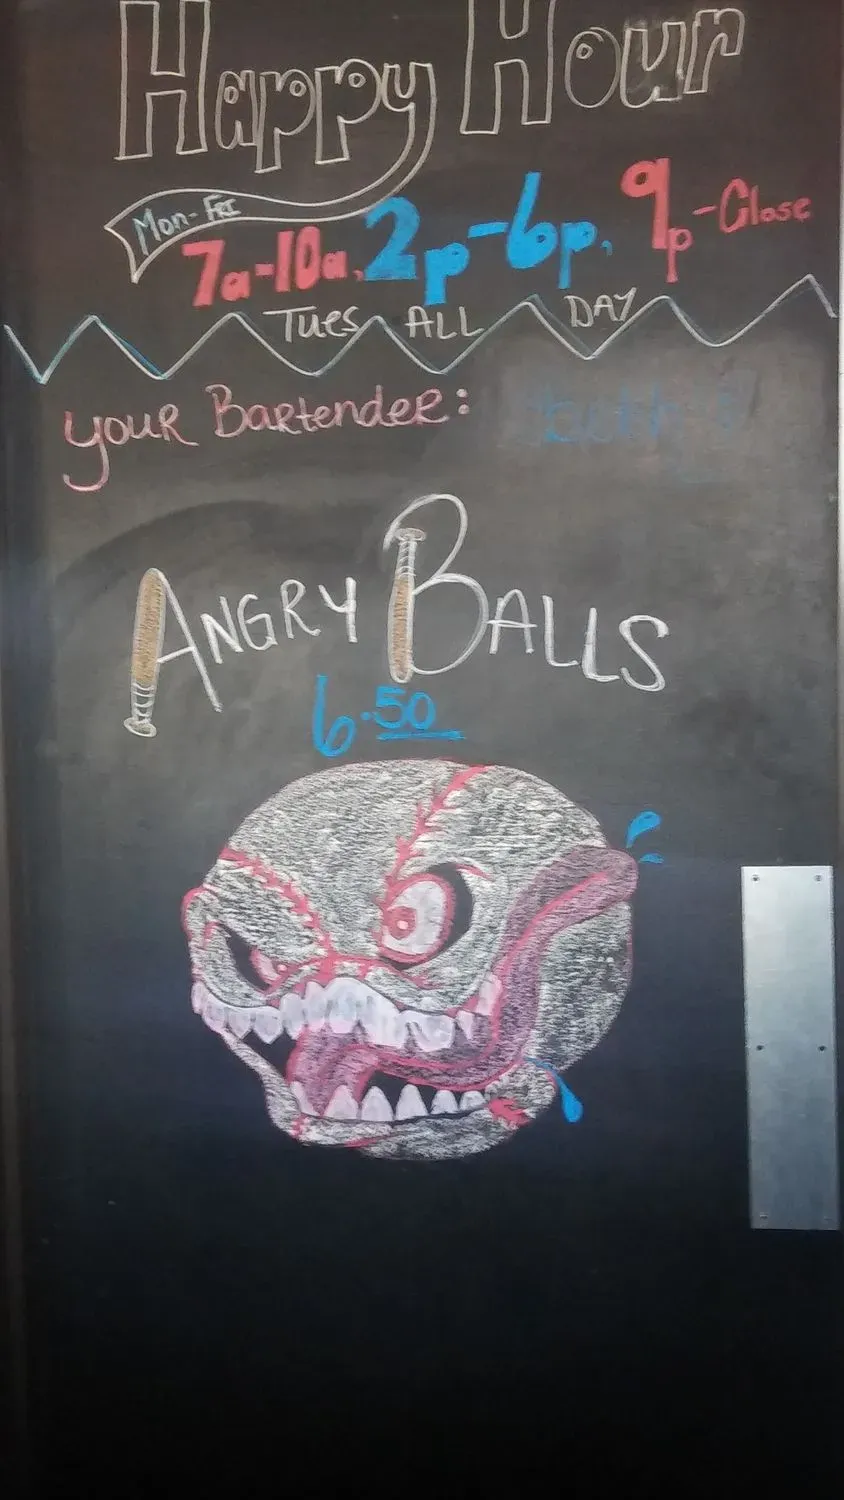 Happy Hour
Mon-Fri
7a-10a, 2p-6p, 9p-Close
Tues ALL DAY
your Bartender:
ANGRY BALLS
6.50